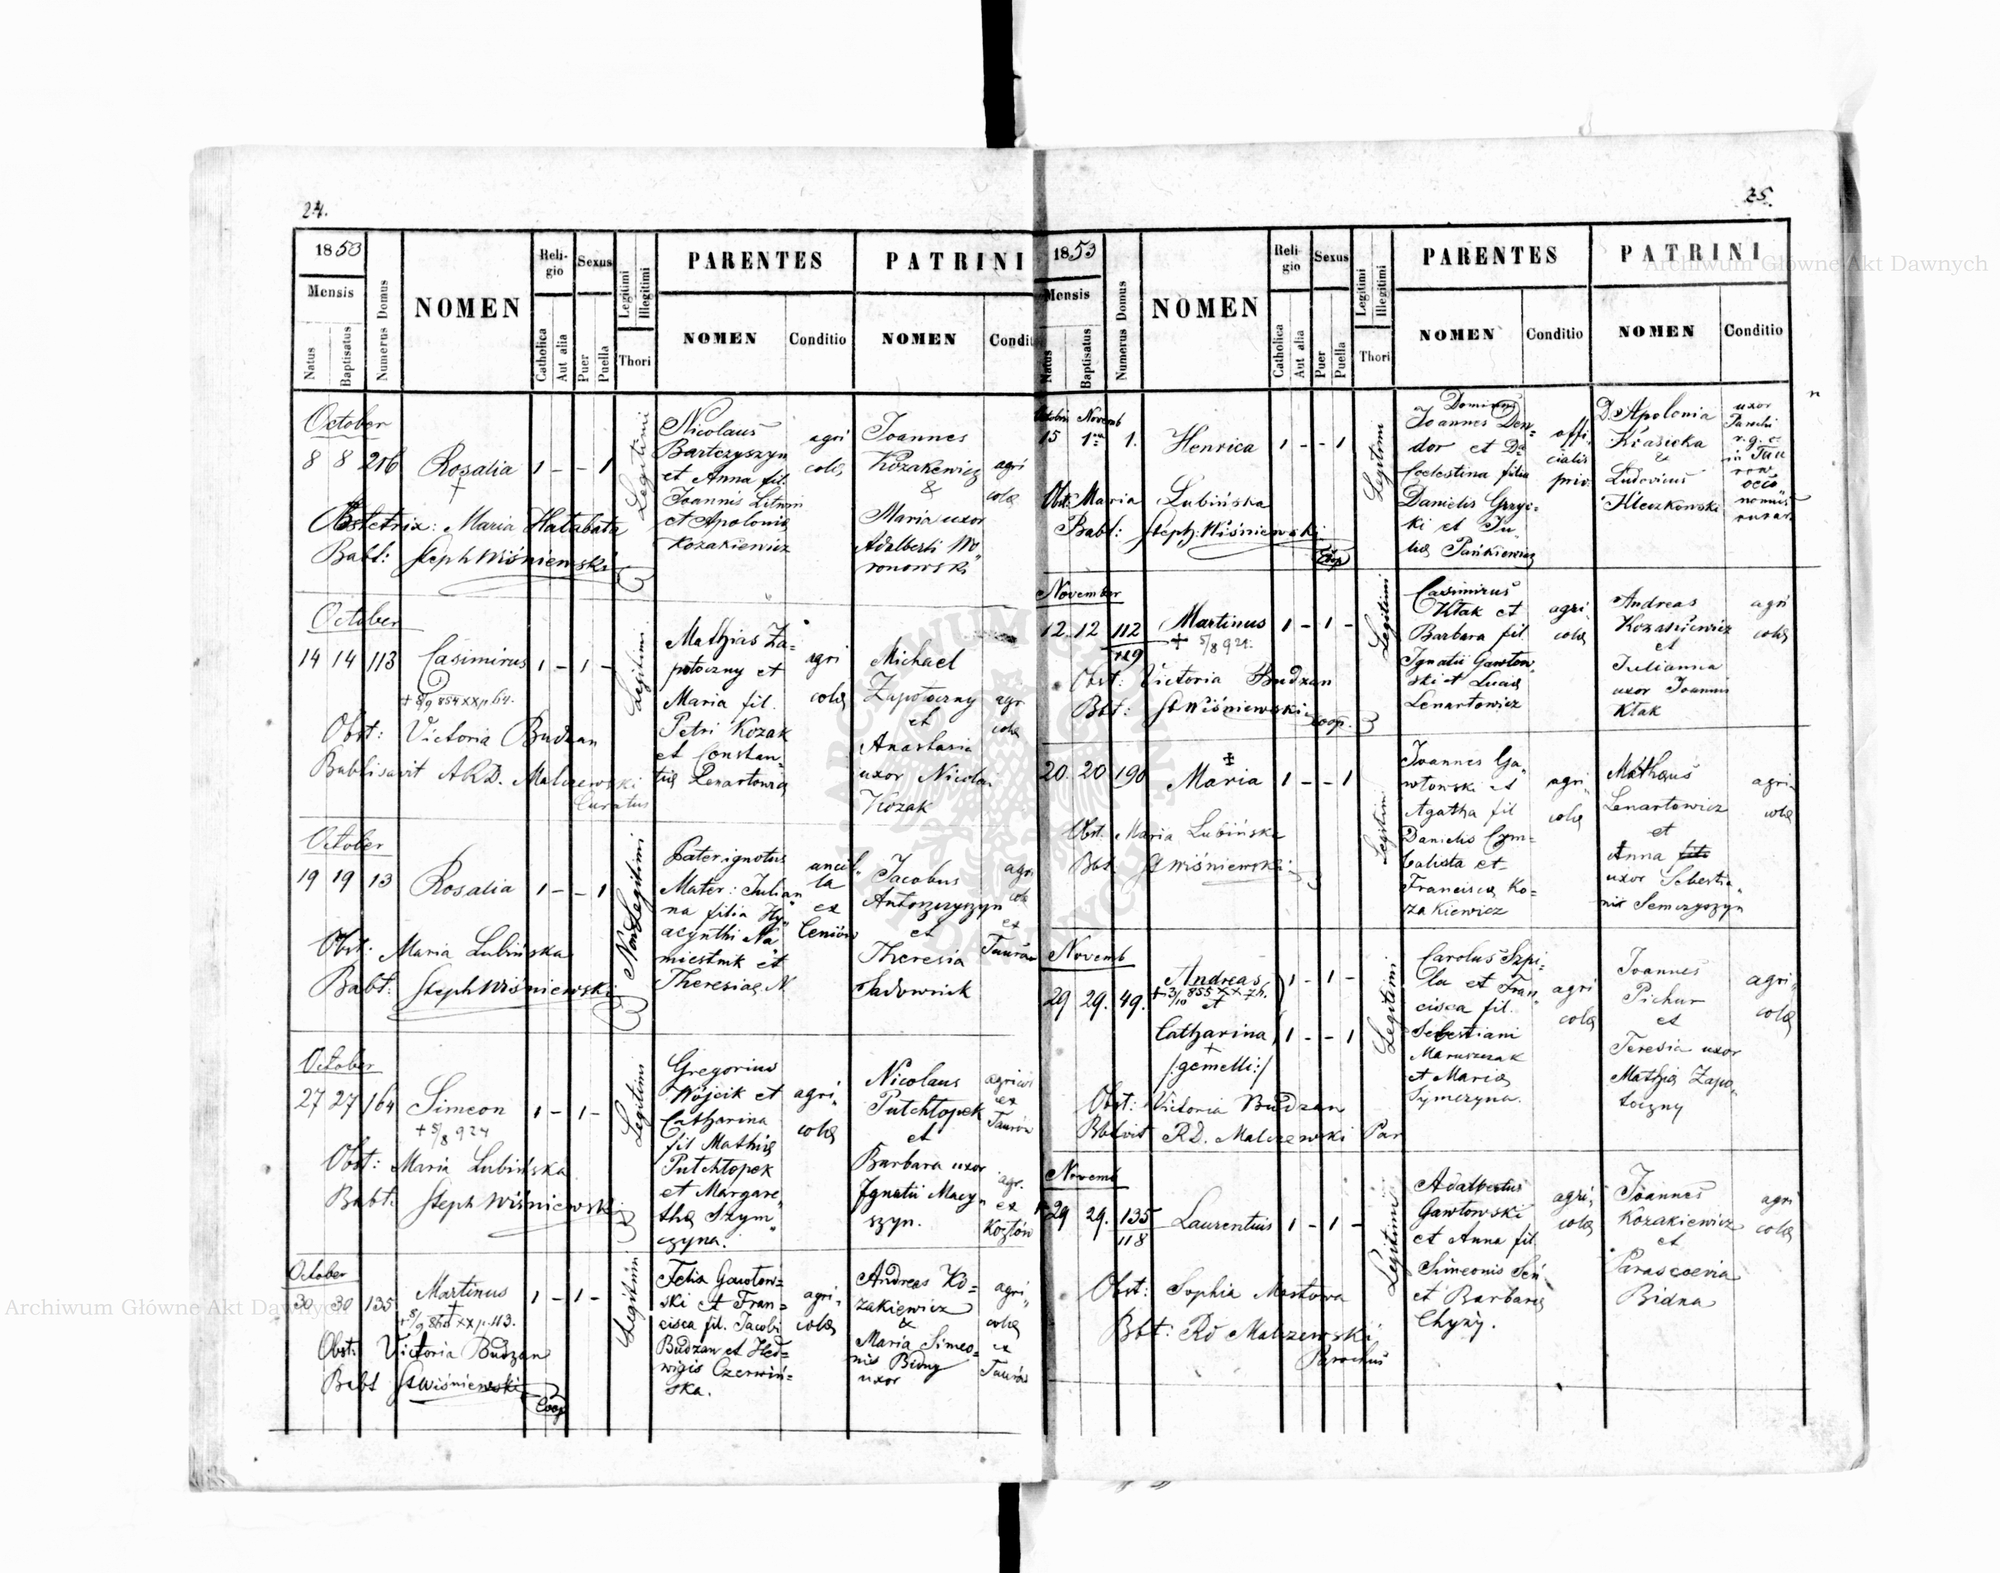 24.
1853
Mensis
Natus
Baptisatus
Numerus Domus
NOMEN
Religio
Catholica
Aut alia
Sexus
Puer
Puella
Legitimi
Illegitimi
Thori
PARENTES
NOMEN
Conditio
PATRINI
NOMEN
Conditio
October
8 8 216 Rosalia 1 - - 1
Legitimi
Nicolaus
Bartczyszyn
et Anna fil.
Joannis Litwin
et Apolonia
Kozakiewicz
agri
colæ
Joannes
Kozakewicz
&
Maria uxor
Adalberti Wo„
ronowski
agri
colæ
Obstetrix: Maria Hałabała
Babt: Steph Wiśniewski
October
14 14 113 Casimirus 1 - 1 -
+ 8/9 854 XX p 64.
Legitimi
Mathias Za=
potoczny et
Maria fil.
Petri Kozak
et Constan„
tiæ Lenartowicz
agri
colæ
Michael
Zapotoczny
et
Anastasia
uxor Nicolai
Kozak
agr
colæ
Obst: Victoria Budzan
Babtisavit ARD. Malczewski
Curatus
October
19 19 13 Rosalia 1 - - 1
Non Legitimi
Pater ignotus
Mater: Julian
na filia Hy„
acynthi Na„
miestnik et
Theresiæ N
ancil„
la
ex
Ceniów
Jacobus
Antonzyszyn
et
Theresia
Sadownik
agri
colæ
ex
Taurów
Obst: Maria Lubińska
Babt: Steph Wiśniewski
October
27 27 164 Simeon 1 - 1 -
+ 5/8 924
Legitimi
Gregorius
Wójcik et
Catharina
fil Mathiæ
Putchłopek
et Margare„
thæ Szym„
czyna.
agri„
colæ
Nicolaus
Putchłopek
et
Barbara uxor
Ignatii Macy„
szyn.
agricol
ex
Taurów
agr.
ex
Kozłów
Obst: Maria Lubińska
Babt: Steph Wiśniewski
October
30 30 135 Martinus 1 - 1 -
Legitimi
Felix Gawłow=
ski et Fran=
cisca fil. Jacobi
Budzan et Hed=
wigis Czerwiń=
ska.
agri„
colæ
Andreas Ko=
zakiewicz
&
Maria Simeo=
nis Bidny
uxor
agri„
colæ
ex
Taurów
Obst: Victoria Budzan
Babt St Wiśniewski
Coop
25.
1853
Mensis
Natus
Baptisatus
Numerus Domus
NOMEN
Religio
Catholica
Aut alia
Sexus
Puer
Puella
Legitimi
Illegitimi
Thori
PARENTES
NOMEN
Conditio
PATRINI
NOMEN
Conditio
Octobris Novemb
15 1ma 1. Henrica 1 - - 1
Legitimi
Dominus
Joannes Den„
dor et Da
Coelestina filia
Danielis Grzyc„
ki et Ju„
liæ Pańkiewicz
offi„
cialis
priv.
D. Apolonia
Krasicka
&
Ludovicus
Kleczkowski
uxor
Parochi
r.g.c.
in Tau
row
oeco
nomus
Obst: Maria Lubińska
Babt: Steph: Wiśniewski
Coop
November
12. 12 112 Martinus 1 - 1 -
129
+ 5/8 924.
Legitimi
Casimirus
Kłak et
Barbara fil
Ignatii Gawłow„
ski et Luciæ
Lenartowicz
agri
colæ
Andreas
Kozakiewicz
et
Julianna
uxor Joannis
Kłak
agri
colæ
Obst: Victoria Budzan
Bbt: St Wiśniewski coop.
20. 20 190 Maria 1 - - 1
Legitimi
Joannes Ga„
włowski et
Agatha fil
Danielis Cym=
balista et
Francisca Ko=
zakiewicz
agri„
colæ
Matheus
Lenartowicz
et
Anna
uxor Sebestia„
nis Semczyszyn
agri„
colæ
Obst. Maria Lubińska
Bbt St Wiśniewski
Novemb
29 29. 49. Andreas 1 - 1 -
+ 3/10 855 XX 76.
et
Catharina 1 - - 1
/:gemelli:/
Legitimi
Carolus Szpi=
la et Fran„
cisca fil.
Sebestiani
Maruszczak
et Mariæ
Symczyna.
agri
colæ
Joannes
Pichur
et
Teresia uxor
Mathiæ Zapo„
toczny
agri„
colæ
Obst: Victoria Budzan
Babtvit RD. Malczewski Par
Novemb
29 29. 135 Laurentius 1 - 1 -
118
Legitimi
Adalbertus
Gawłowski
et Anna fil.
Simeonis Seń
et Barbaræ
Chyży.
agri„
colæ
Joannes
Kozakiewicz
et
Parascevia
Bidna
agri
colæ
Obst: Sophia Mostowa
Bbt: Rd Malczewski
Parochus
Archiwum Główne Akt Dawnych
Archiwum Główne Akt Dawnych